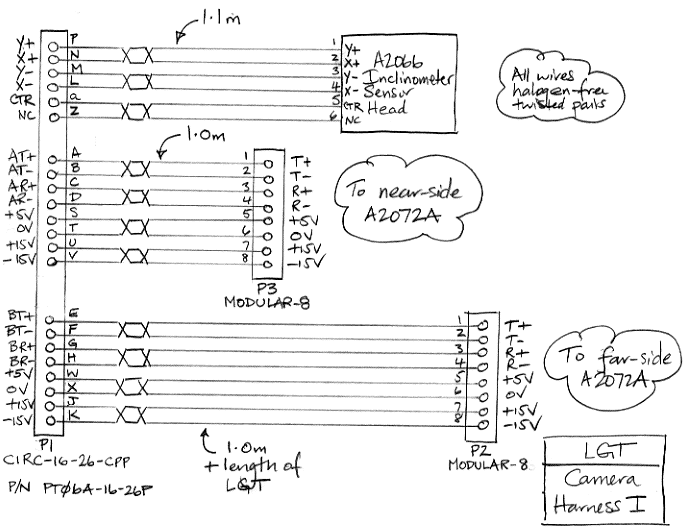 1.1m
Y+ P 1 Y+
X+ N 2 X+ A2066
Y- M 3 Y- Inclinometer
X- L 4 X- Sensor
CTR a 5 CTR Head
NC Z 6 NC
All wires
halogen-free
twisted pairs
1.0m
AT+ A 1 T+
AT- B 2 T-
AR+ C 3 R+
AR- D 4 R-
+5V S 5 +5V
0V T 6 0V
+15V U 7 +15V
-15V V 8 -15V
P3
MODULAR-8
To near-side
A2072A
BT+ E 1 T+
BT- F 2 T-
BR+ G 3 R+
BR- H 4 R-
+5V W 5 +5V
0V X 6 0V
+15V J 7 +15V
-15V K 8 -15V
To far-side
A2072A
P1
CIRC-16-26-CPP
P/N PT06A-16-26P
1.0m
+ length of
LGT
P2
MODULAR-8
LGT
Camera
Harness I